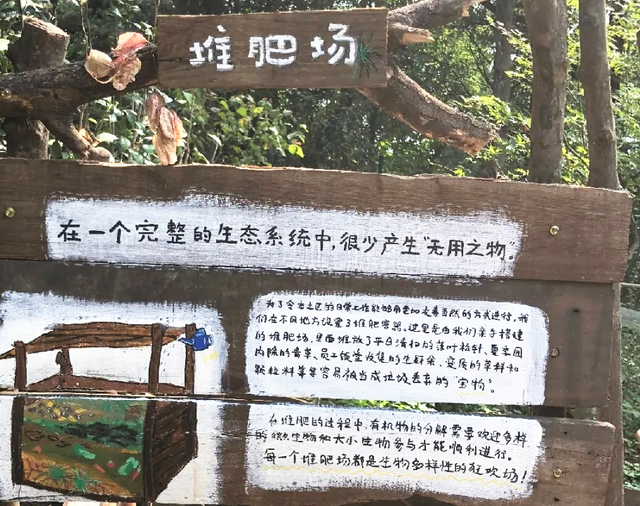 堆肥场
在一个完整的生态系统中,很少产生“无用之物”。
为了 社区的日常工作能够用更加友善自然的方式进行,我
们在不同地方设置了堆肥容器。这里是由我们亲手搭建
的堆肥场,里面堆放了平日清扫的落叶松针、夏季园
内除的杂草、员工饭堂收集的生厨余、变质的草料和
颗粒料等等容易被当成垃圾丢弃的“宝物”。
在堆肥的过程中,有机物的分解需要欢迎多样
的微生物和大小生物参与才能顺利进行。
每一个堆肥场都是生物多样性的狂欢场!